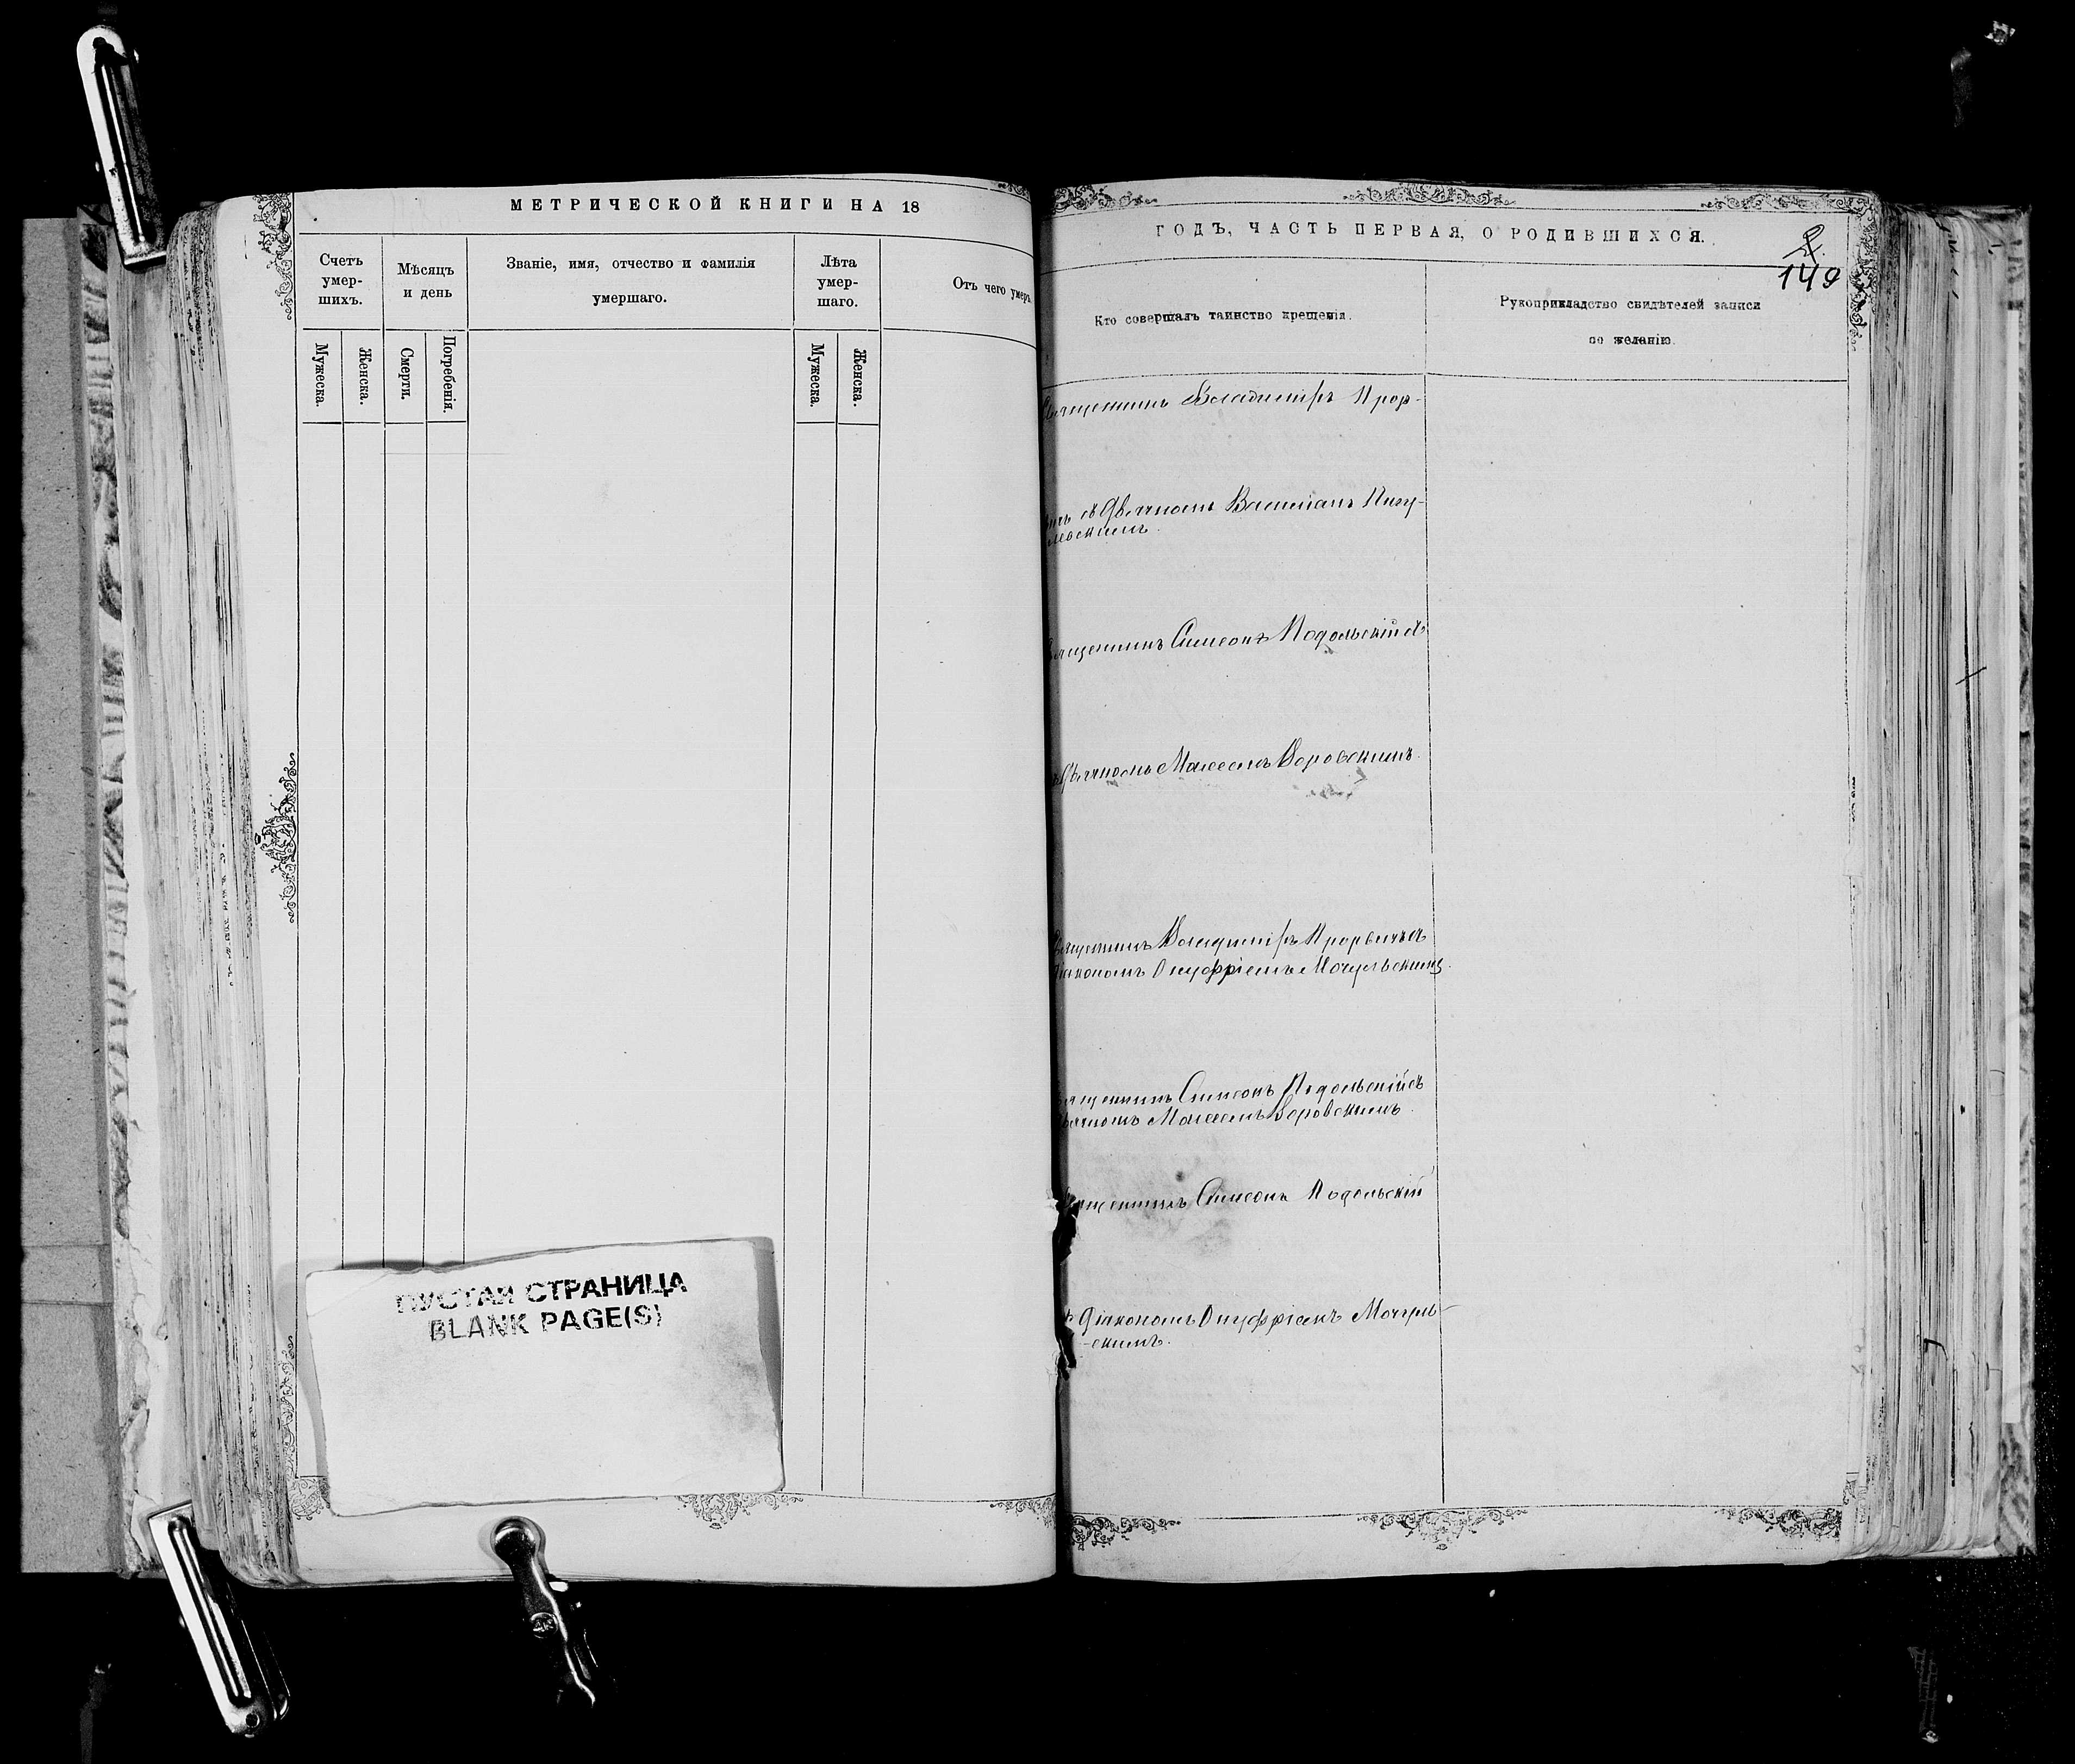 МЕТРИЧЕСКОЙ КНИГИ НА 18
Счетъ умер-шихъ.
Мѣсяцъ и день
Званіе, имя, отчество и фамилія
умершаго.
Лѣта умер-шаго.
Отъ чего умеръ
Мужеска.
Женска.
Смерти.
Погребенія.
Мужеска.
Женска.
ПУСТАЯ СТРАНИЦА
BLANK PAGE(S)
ГОДЪ, ЧАСТЬ ПЕРВАЯ, О РОДИВШИХСЯ.
149
Кто совершалъ таинство крещенія.
Рукоприкладство свидѣтелей записи
по желанію.
Священникъ Владиміръ Прор-
Василіемъ
Священникъ Симеонъ Подольскій съ
Моисеемъ Боровскимъ.
Священникъ Владиміръ Прорвичъ съ
Діакономъ Онуфріемъ Мочульскимъ.
Священникъ Симеонъ Подольскій съ
Моисеемъ Боровскимъ.
Священникъ Симеонъ Подольскій
съ Діакономъ Онуфріемъ Мочуль-
-скимъ.